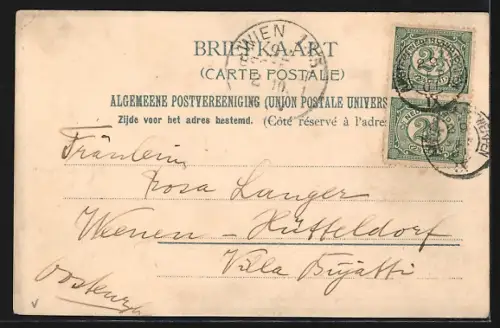 BRIEFKAART
(CARTE POSTALE)
ALGEMEENE POSTVEREENIGING (UNION POSTALE UNIVERS
Zijde voor het adres bestemd. (Côté réservé à l'adres
WIEN
2½
2½
Fräulein
Rosa Langer
Weenen - Hütteldorf
Villa Bujatti
Oostenryk